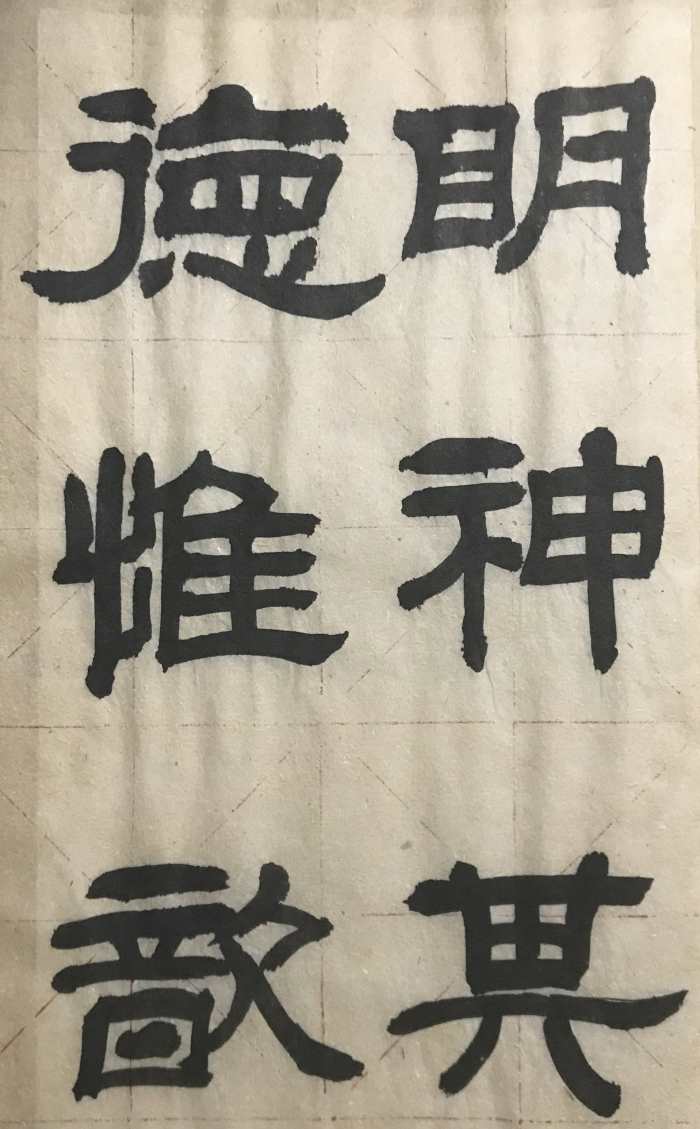 明神其
德惟歆